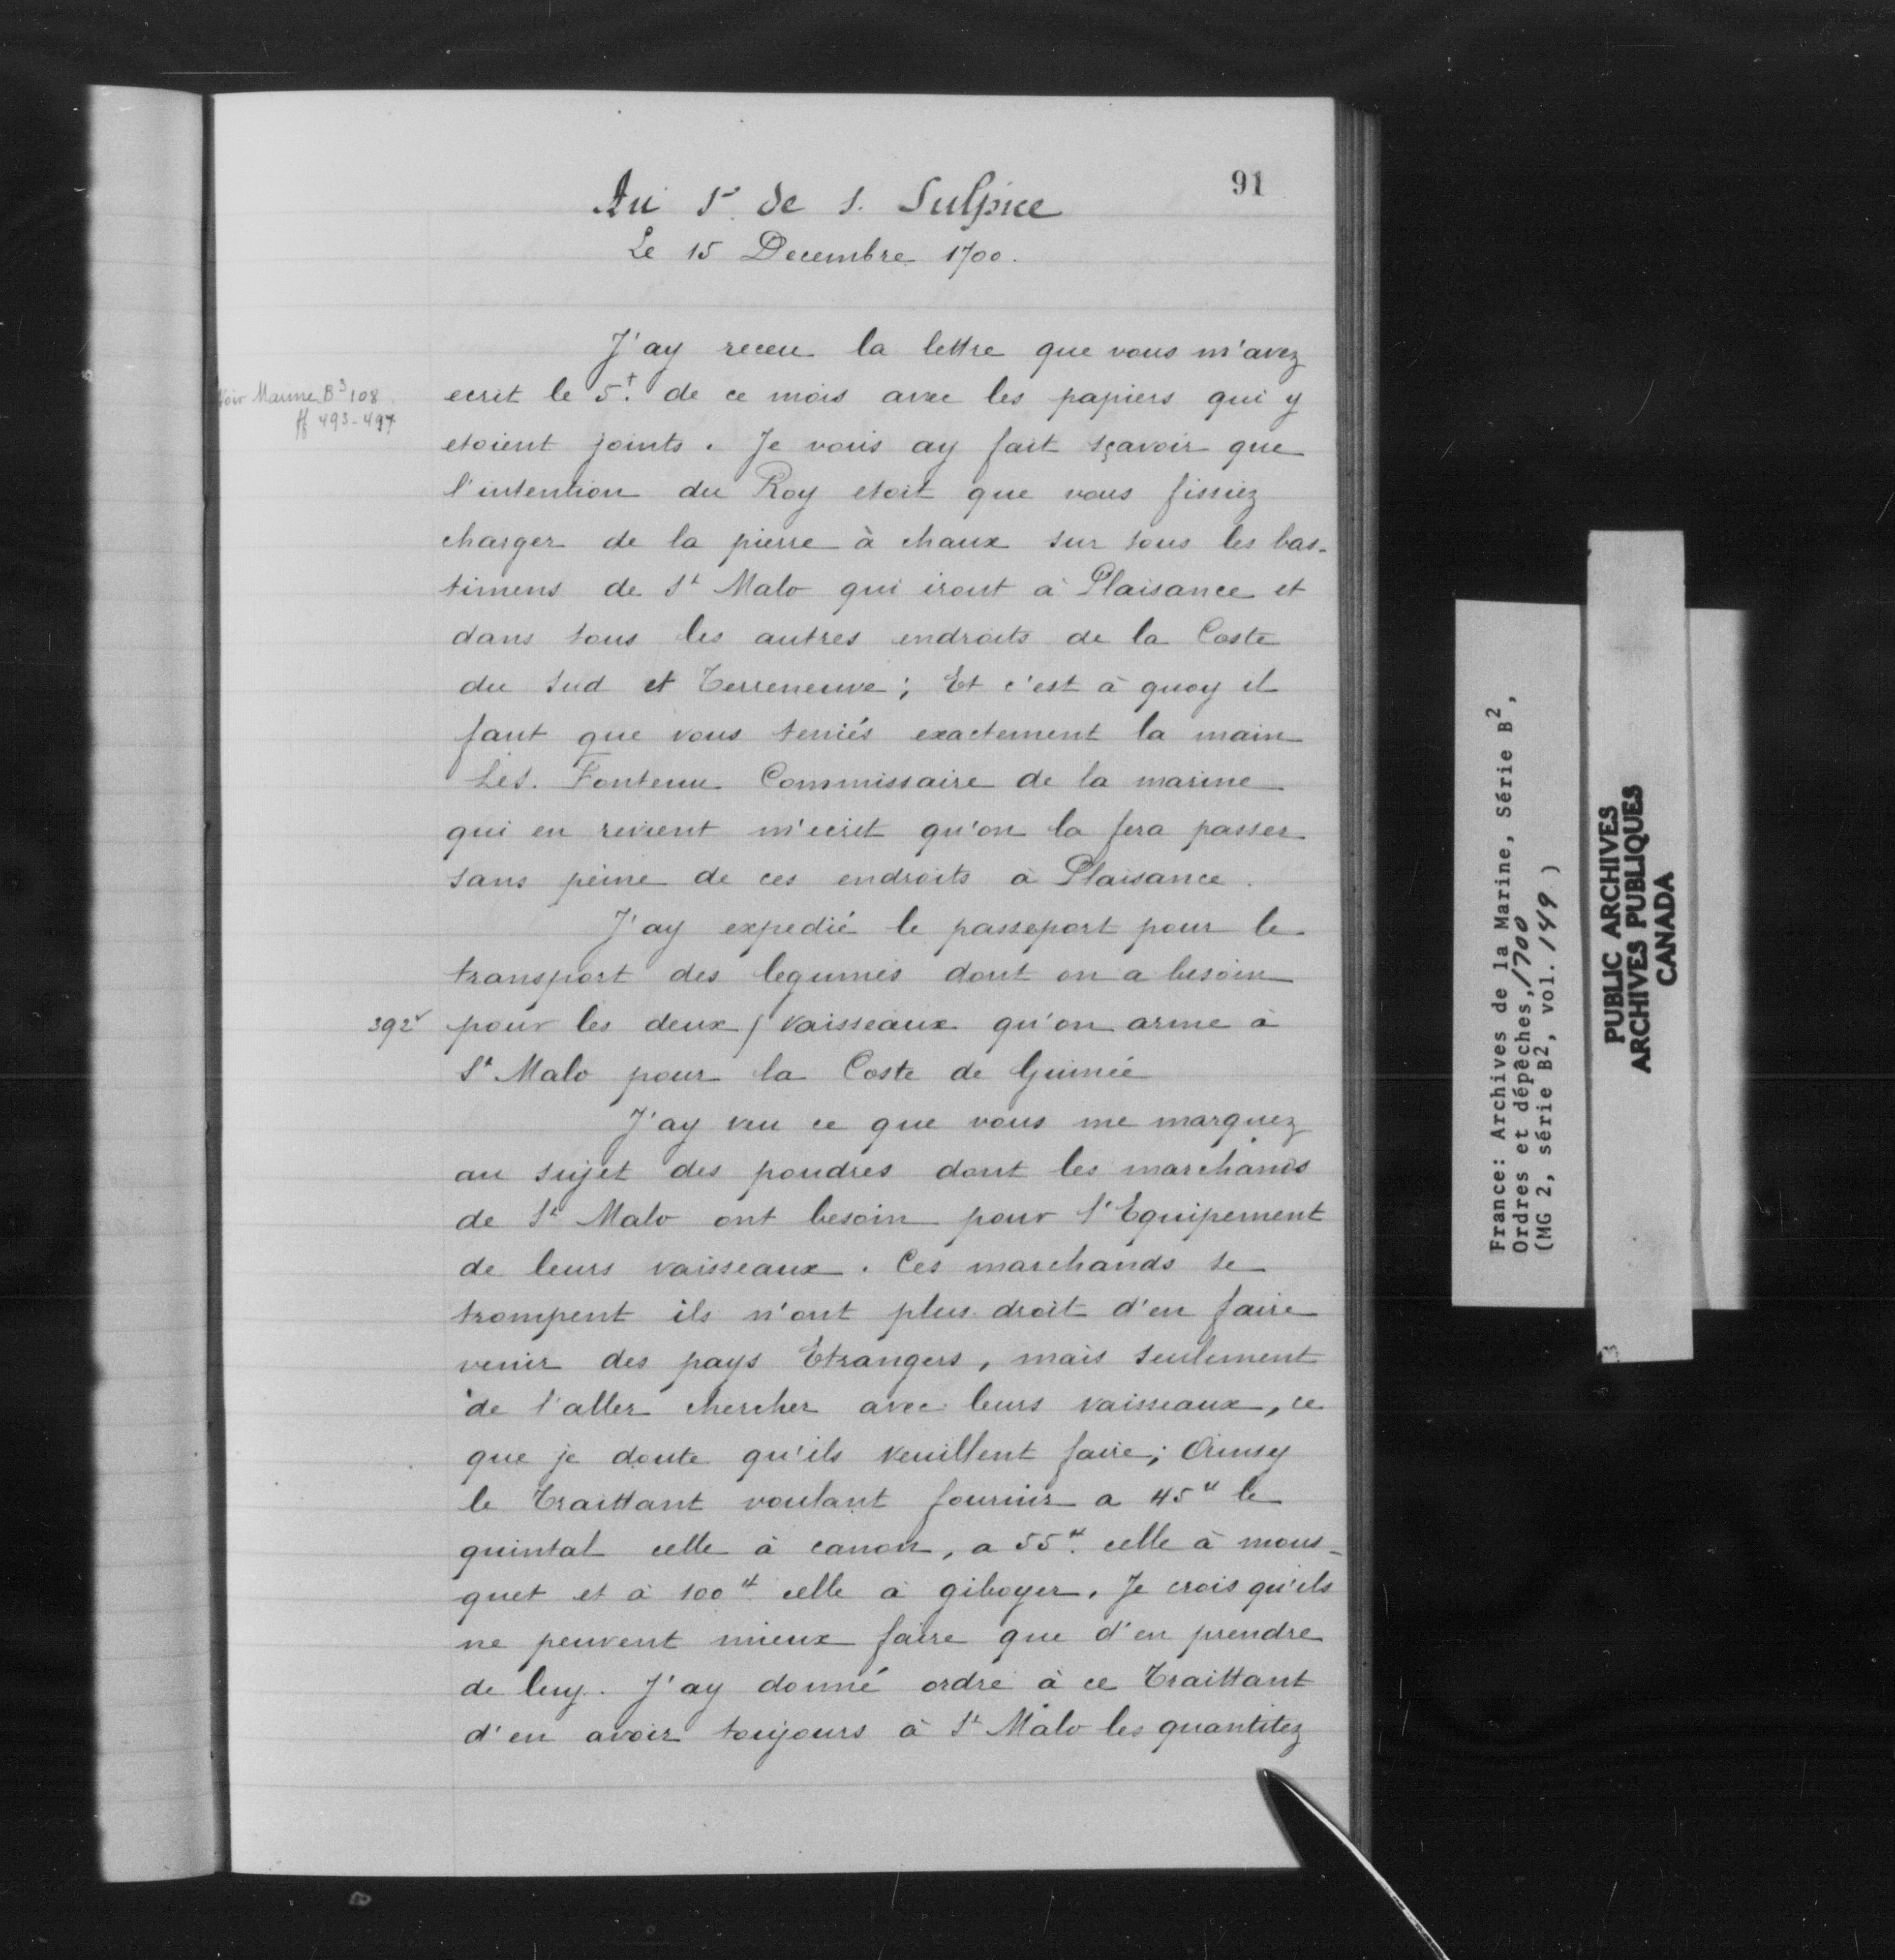 91
Au Sr. de S. Sulpice
Le 15 Decembre 1700.
J'ay receu la lettre que vous m'avez
Voir Marine B3 108
ff 493-497
ecrit le 5t. de ce mois avec les papiers qui y
etoient joints. Je vous ay fait sçavoir que
l'intention du Roy etoit que vous fissiez
charger de la pierre à chaux sur tous les bas-
timens de St Malo qui iront à Plaisance et
dans tous les autres endroits de la Coste
du Sud et Terreneuve; Et c'est à quoy il
faut que vous teniés exactement la main
Le S. Fontenu Commissaire de la marine
qui en revient m'ecrit qu'on la fera passer
sans peine de ces endroits à Plaisance.
J'ay expedié le passeport pour le
transport des legumes dont on a besoin
392v pour les deux / vaisseaux qu'on arme à
St Malo pour la Coste de Guinée
J'ay veu ce que vous me marquez
au sujet des poudres dont les marchands
de St Malo ont besoin pour l'Equipement
de leurs vaisseaux. Ces marchands se
trompent ils n'ont plus droit d'en faire
venir des pays Etrangers, mais seulement
de l'aller chercher avec leurs vaisseaux, ce
que je doute qu'ils veuillent faire;
le Traittant voulant fournir a 45# le
quintal celle à canon, a 55#. celle à mous-
quet et à 100#. celle à giboyer. Je crois qu'ils
ne peuvent mieux faire que d'en prendre
de luy. J'ay donné ordre à ce Traittant
d'en avoir toujours à St Malo les quantitez
France: Archives de la Marine, Série B2,
Ordres et dépêches, 1700
(MG 2, série B2, vol. 149 )
PUBLIC ARCHIVES
ARCHIVES PUBLIQUES
CANADA